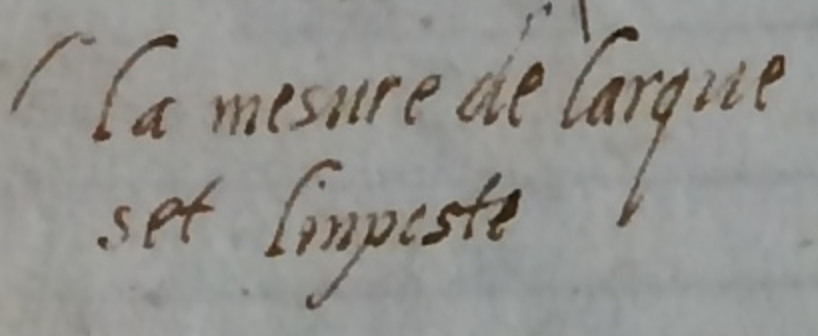 la mesure de larque
set linposte